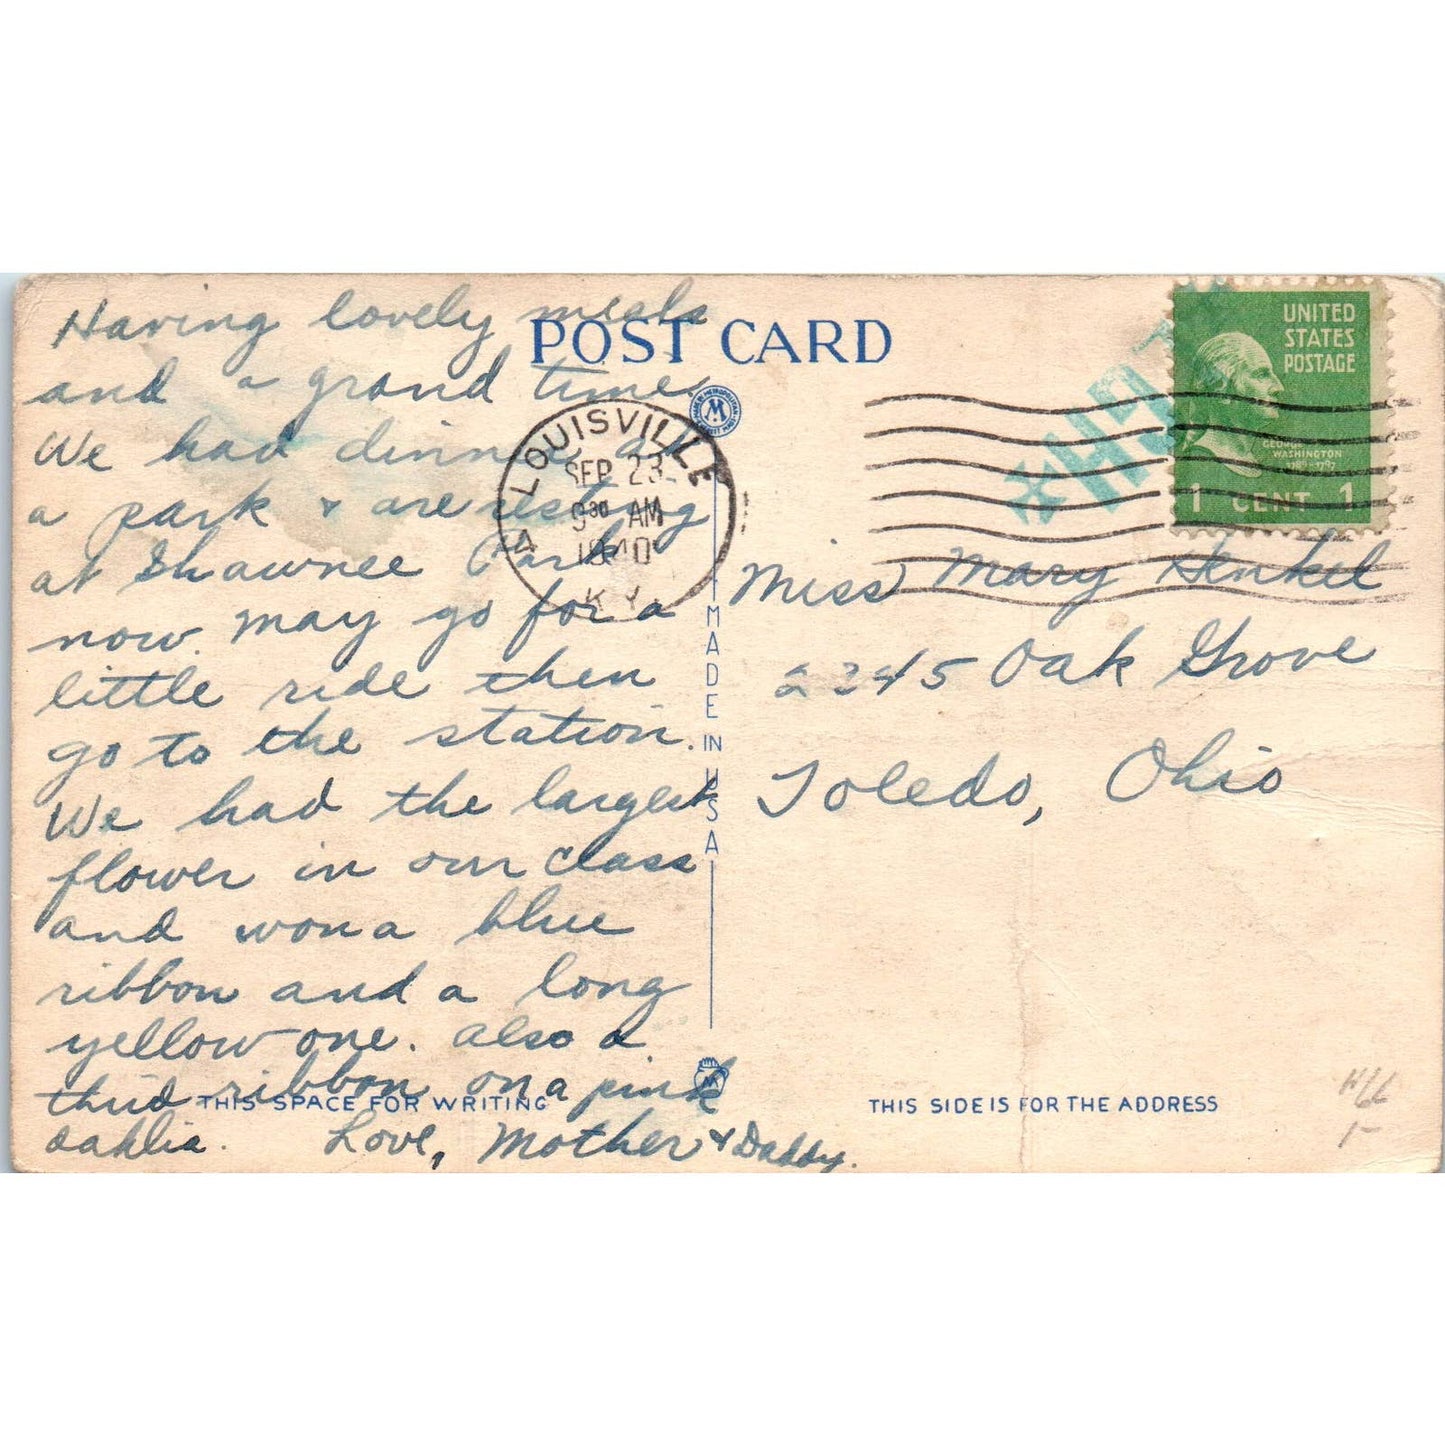 Having lovely meals
and a grand time,
We had dinner at
a park & are resting
at Shawnee Park
now. May go for a
little ride then
go to the station.
We had the largest
flower in our class
and won a blue
ribbon and a long
yellow one. Also a
third ribbon on a pink
dahlia. Love, Mother & Daddy.
POST CARD
LOUISVILLE
SEP 23
9 30 AM
1940
KY.
MADE IN USA
THIS SPACE FOR WRITING
UNITED
STATES
POSTAGE
GEORGE
WASHINGTON
1789-1797
1 CENT 1
Miss Mary Henkel
2345 Oak Grove
Toledo, Ohio
THIS SIDE IS FOR THE ADDRESS